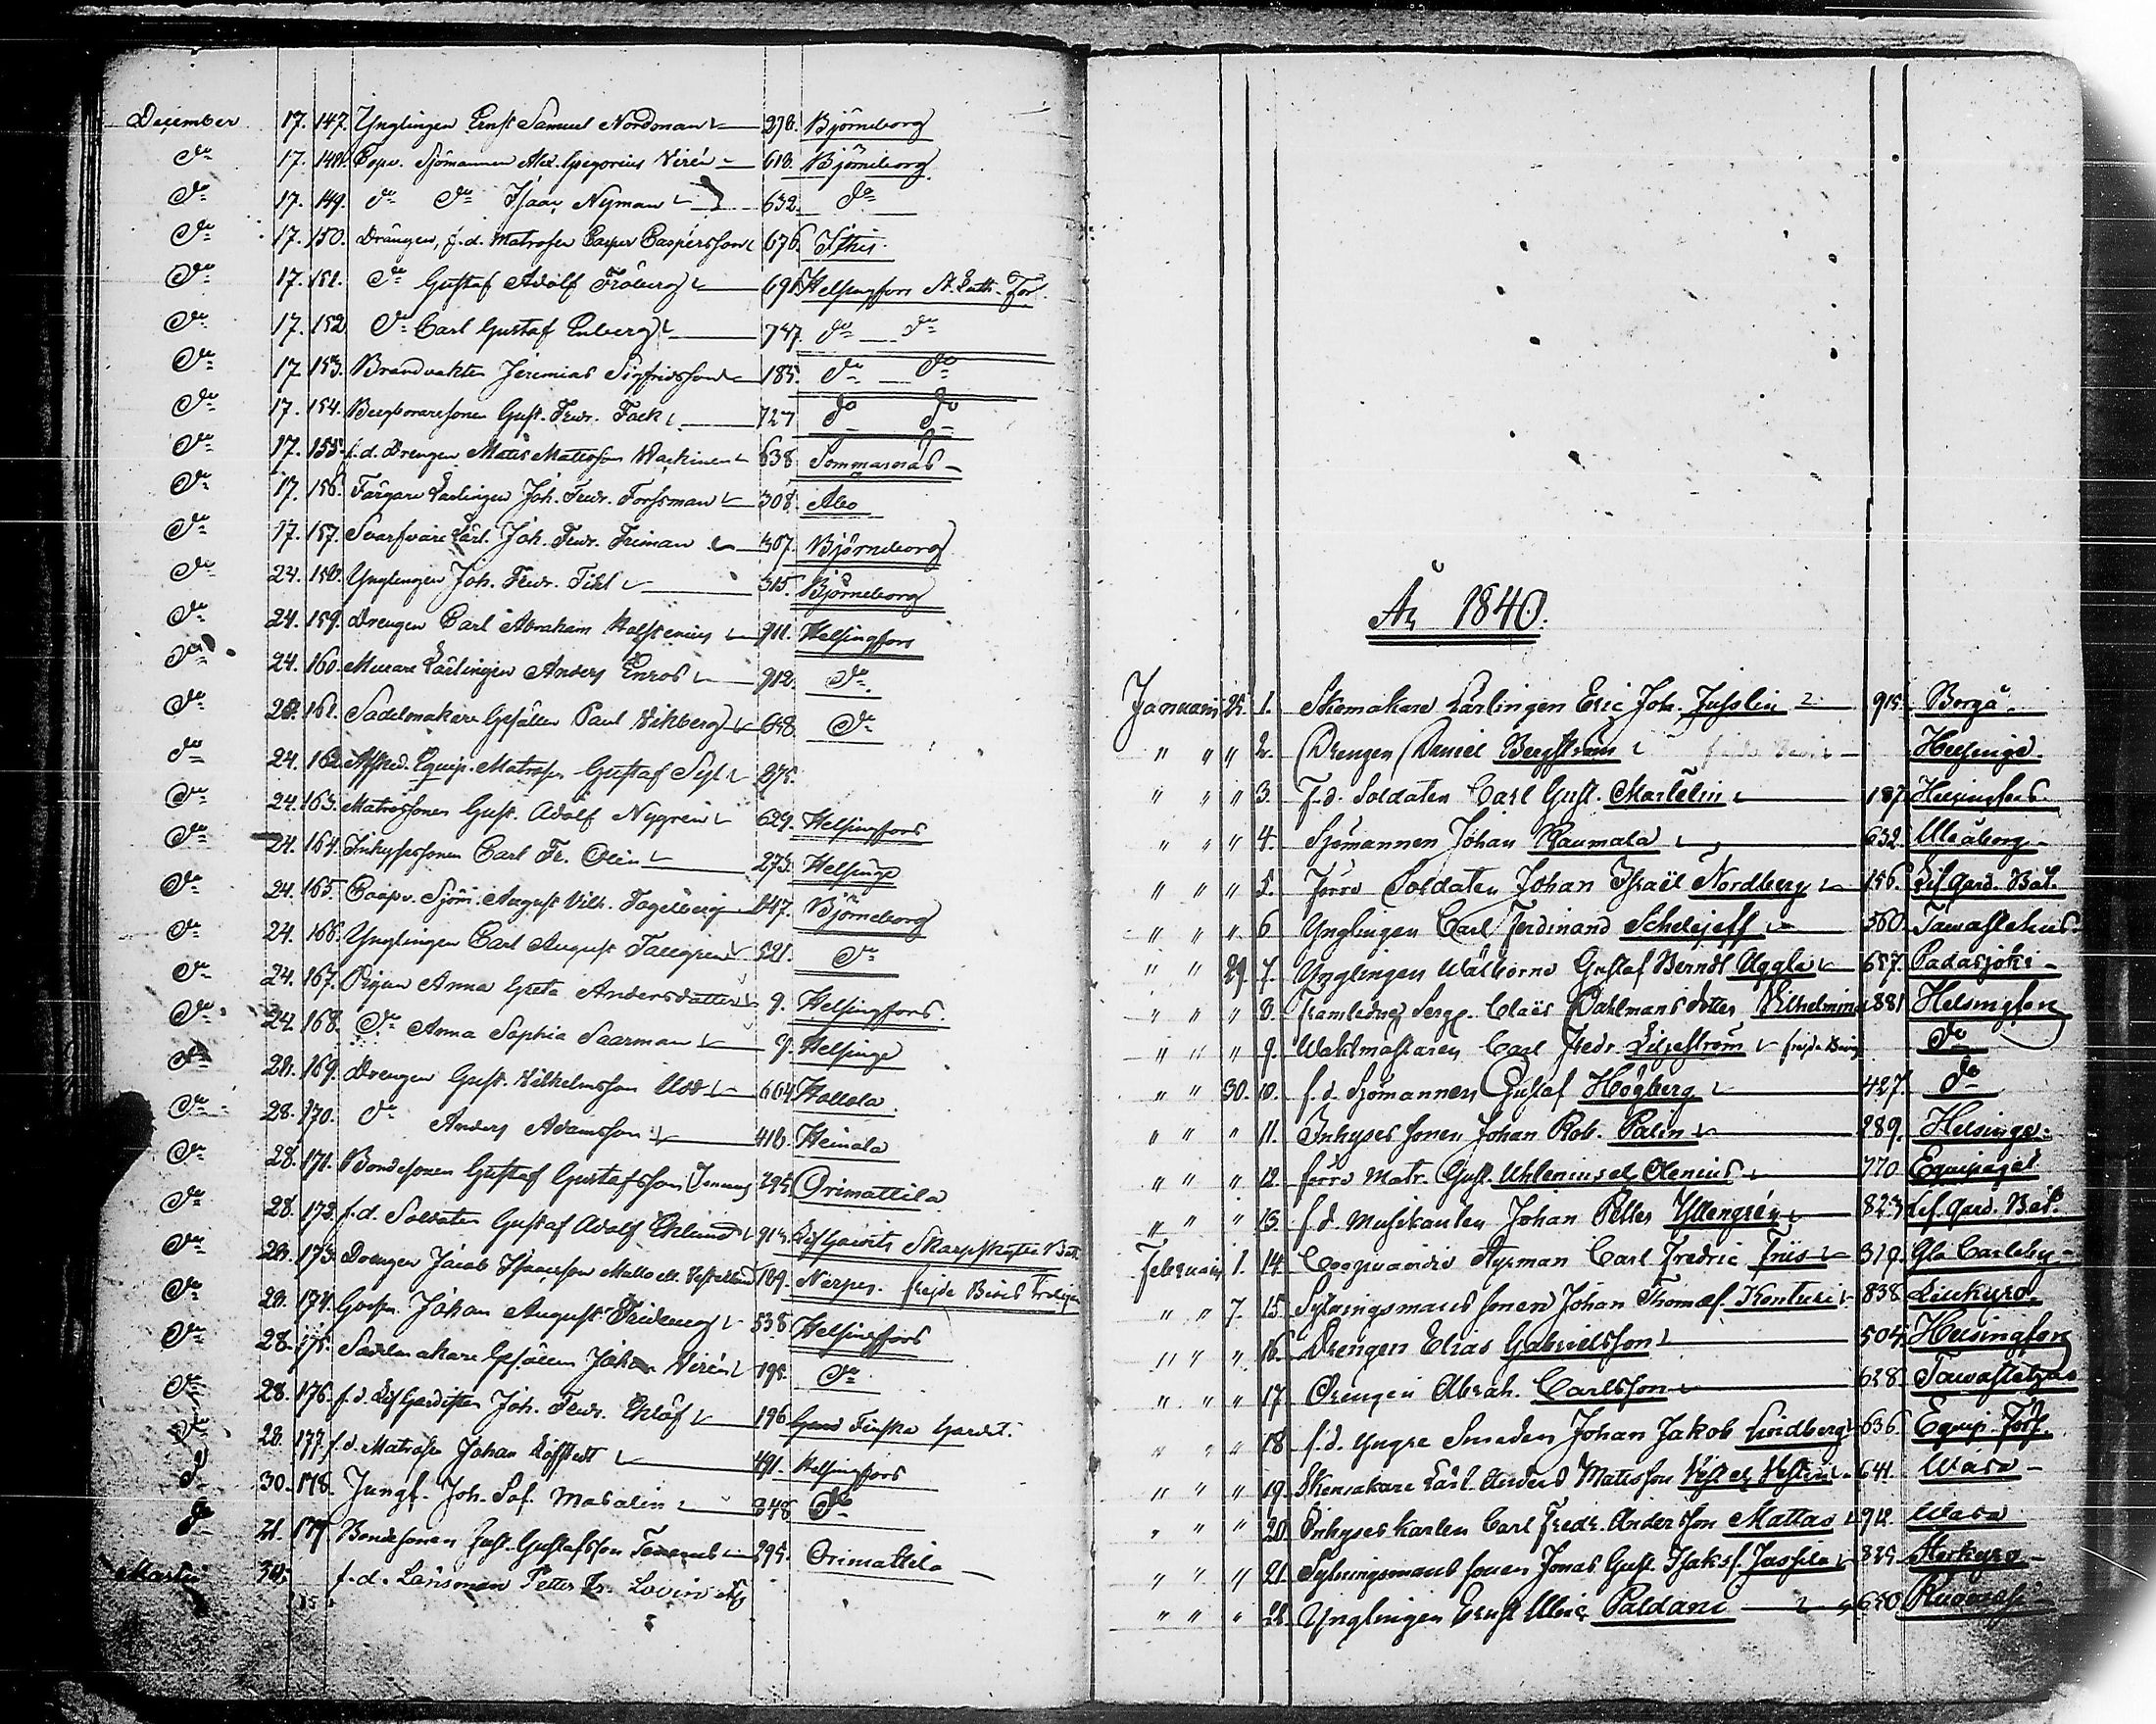 December 17. 147. Ynglingen Ernst Samuel Nordman 278. Björneborg
Do 17. 148. Coopv. Sjömannen Alex. Gregorius Virén 613. Björneborg
Do 17. 149. do do Isaac Nyman 632. do
Do 17. 150. Drängen, f.d. Matrosen Casper Caspersson 676. Ithis
Do 17. 151. Do Gustaf Adolf Fröberg 691 Helsingfors N. Luth. Förs.
Do 17. 152 Do Carl Gustaf Enberg 747. do do
Do 17. 153. Brandvakten Jeremias Sigfridsson 185. do do
Do 17. 154. Borgaresonen Gust. Fredr. Fack 727 do do
Do 17. 155. f.d. Drengen Matts Mattsson Wackinen 638 Sommarnäs
Do 17. 156. Färgare Lärlingen Joh. Fredr. Forssman 308. Åbo
Do 17. 157. Svarfvare Lärl. Joh. Fredr. Friman 307. Björneborg
Do 24. 158. Ynglingen Joh. Fredr. Fihl 315. Björneborg
Do 24. 159. Drengen Carl Abraham Holstenius 911. Helsingfors
Do 24. 160. Murare Lärlingen Anders Enros 912. Do
Do 28. 161. Sadelmakare Gesällen Paul Vikberg 648 Do
Do 24. 162. Afsked. Equip. Matrosen Gustaf Syl 275.
Do 24. 163. Matrossonen Gust. Adolf Nygren 629. Helsingfors
Do 24. 164. Inhysessonen Carl Fr. Olin 273. Helsinge
Do 24. 165. Coopv. Sjöm. August Vilh. Fagelberg 247. Björneborg
Do 24. 166. Ynglingen Carl August Tallgren 521. Do
Do 24. 167. Pigan Anna Greta Andersdotter 9. Helsingfors.
Do 24. 168. Do Anna Sophia Saarman 9. Helsinge
Do 28. 169. Drengen Gust. Vilhelmsson 664 Hollola
Do 28. 170. do Anders Adamsson 418. Heinola
Do 28. 171. Bondesonen Gustaf Gustafsson 295. Orimattila
Do 28. 172. f.d. Soldaten Gustaf Adolf Eklund 913. Lif Gardets Skarpskytte Bat.
Do 28. 173. Drengen Jacob Isaacson 189. Nerpes.
Do 28. 174. Johan August Fridberg 538. Helsingfors
Do 28. 175. Sadelmakare Gesällen Johan Virén 195. Do
Do 28. 176. f.d. Lif Gardisten Joh. Fredr. Eklöf 196 Finska Gardet.
Do 28. 177. f.d. Matrosen Johan Löfstedt 491. Helsingfors
Do 30. 178. Jungf. Joh. Sof. Masalin 348. Do
Do 31. 179. Bondesonen Just. Gustafsson 295. Orimattila
f.d. Länsman Petter Lovin
År 1840.
Januari 25. 1. Skomakare Lärlingen Eric Joh. Jusslin 915. Borgå.
" " " 2. Drengen Daniel Bergström Helsinge.
" " " 3. F.d. Soldaten Carl Gust. Martelin 187. Helsingfors
" " " 4. Sjömannen Johan Raumala 632. Uleåborg
" " " 5. Förre Soldaten Johan Israël Nordberg 156. Lif Gard. Bat.
" " " 6 Ynglingen Carl Ferdinand Schelejeff 560. Tawastehus.
" " 29. 7. Ynglingen Wälborne Gustaf Berndt Uggla 657. Padasjoki
" " " 8. Framledne Serg. Claës Dahlmans dotter Vilhelmina 881 Helsingfors
" " " 9. Waktmästaren Carl Fredr. Liljeström do
" " 30. 10. f.d. Sjömannen Gustaf Högberg 427. do
" " " 11. Inhyses sonen Johan Rob. Palin 289. Helsinge.
" " " 12. förre Matr. Gust. Uhlenius el. Olenius 770 Equipaget
" " " 13 f.d. Musikanten Johan Petter Yllengrén 823 Lif. Gard. Bat.
Februari 1. 14. Coopvaardie Styrman Carl Fredric Friis 319. Gla Carleby
" " 7. 15. Sytningsmans sonen Johan Thomæs. Kenturi 838 Lillkyro.
" " " 16. Drengen Elias Gabrielsson 504. Helsingfors
" " " 17 Drengen Abrah. Carlsson 628. Tawastehus
" " " 18 f.d. Yngre Smeden Johan Jakob Lindberg 636. Equip. Förs.
" " " 19. Skomakare Lärl. Anders Mattsson Vest el. Vestlin 641. Wasa
" " " 20. Inhyses karlen Carl Fredr. Andersson Mattas 912. Wasa
" " " 21. Sytningsmans sonen Jonas Gust. Isakss. Jussila 885. Storkyro
" " " 22. Ynglingen Ernst Ulric Paldani 650